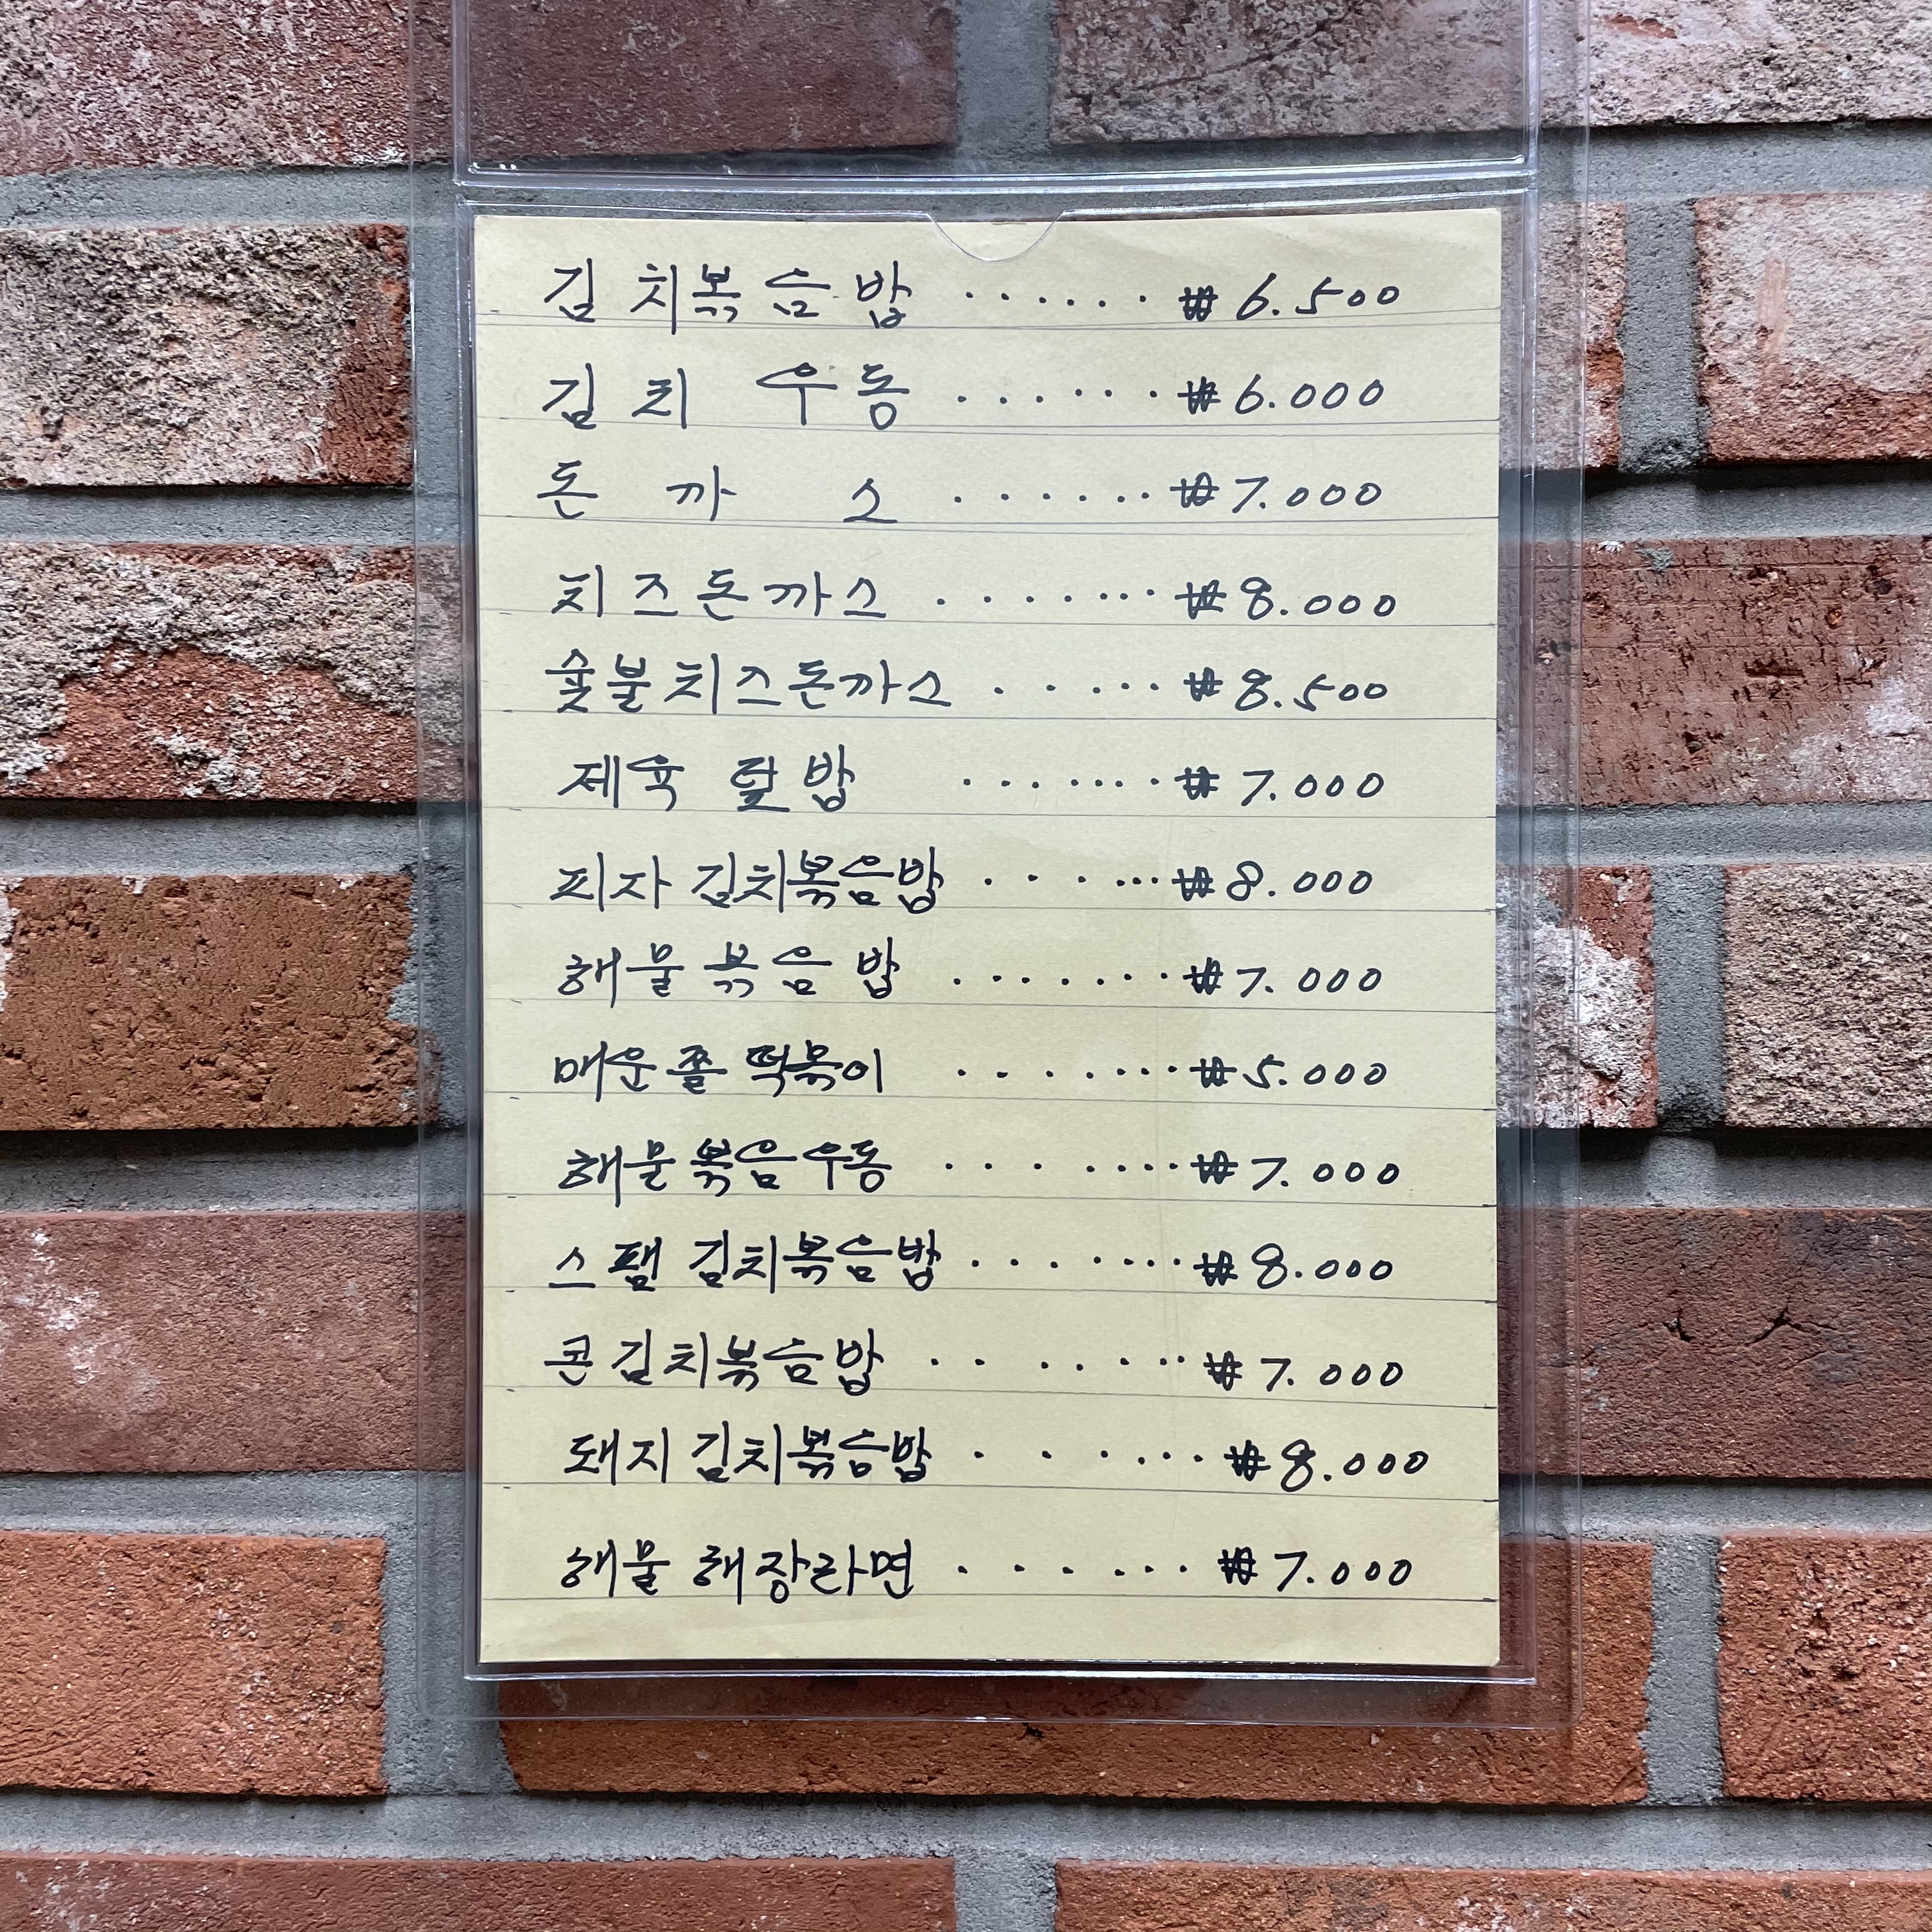 김치볶음밥 ...... ₩6.500
김치 우동 ...... ₩6.000
돈까스 ...... ₩7.000
치즈돈까스 ....... ₩8.000
숯불치즈돈까스 ...... ₩8.500
제육 덮밥 ...... ₩7.000
피자 김치볶음밥 ...... ₩8.000
해물 볶음밥 ....... ₩7.000
매운쫄 떡볶이 ....... ₩5.000
해물볶음우동 ....... ₩7.000
스팸 김치볶음밥 ....... ₩8.000
콘김치볶음밥 ........ ₩7.000
돼지 김치볶음밥 ...... ₩8.000
해물 해장라면 ...... ₩7.000